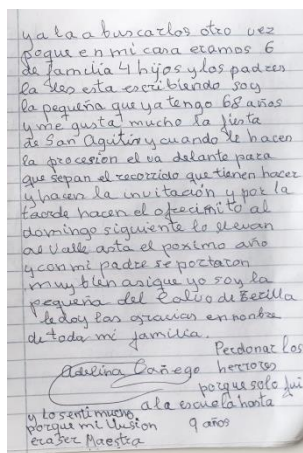 ya la a buscarlos otro vez
poque en mi casa eramos 6
de familia 4 hijos y los padres
la les esta escribiendo soy
la pequeña que ya tengo 68 años
y me gusta mucho la fiesta
de San Agutin y cuando le hacen
la procesion el va delante para
que sepan el recorrido que tienen hacer
y hacen la invitación y por la
taorde hacen el ofrecimito al
domingo siguiente lo llevan
al Valle asta el poximo año
y con mi padre se portaron
muy bien asique yo soy la
pequeña del Calvo de Zerilla
le doy las gracias en nonbre
de toda mi familia.
Perdonar los
Adelina Cañego herrores
porque solo fui
a la escuela hasta
y lo senti mucho, 9 años
porque mi illusion
era ser Maestra